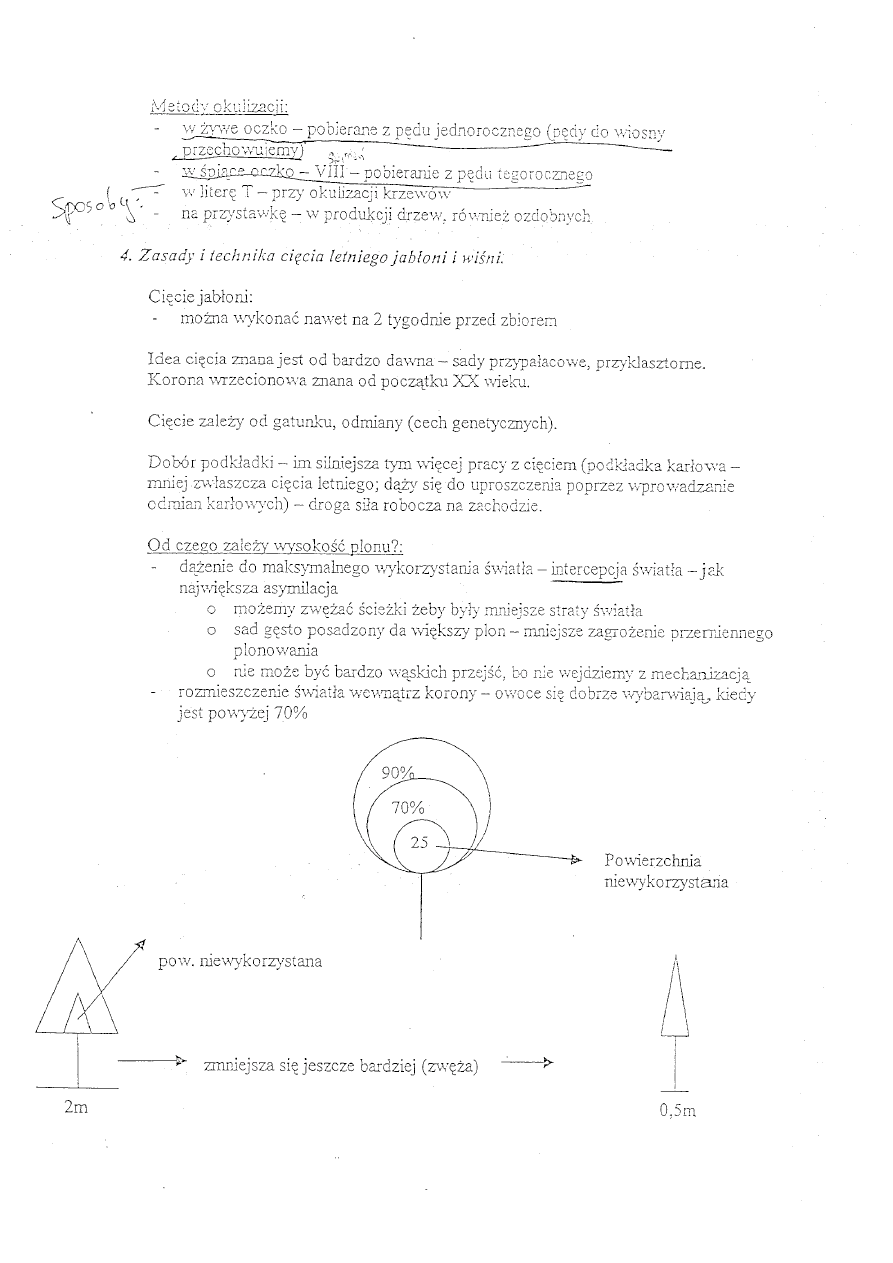 Metody okulizacji:
- w żywe oczko – pobierane z pędu jednorocznego (pędy do wiosny
przechowujemy)
- w śpiące oczko – VIII – pobieranie z pędu tegorocznego
Sposoby:
- w literę T – przy okulizacji krzewów
- na przystawkę – w produkcji drzew, również ozdobnych
4. Zasady i technika cięcia letniego jabłoni i wiśni.
Cięcie jabłoni:
- można wykonać nawet na 2 tygodnie przed zbiorem
Idea cięcia znana jest od bardzo dawna – sady przypałacowe, przyklasztorne.
Korona wrzecionowa znana od początku XX wieku.
Cięcie zależy od gatunku, odmiany (cech genetycznych).
Dobór podkładki – im silniejsza tym więcej pracy z cięciem (podkładka karłowa –
mniej zwłaszcza cięcia letniego; dąży się do uproszczenia poprzez wprowadzanie
odmian karłowych) – droga siła robocza na zachodzie.
Od czego zależy wysokość plonu?:
- dążenie do maksymalnego wykorzystania światła – intercepcja światła – jak
największa asymilacja
o możemy zwężać ścieżki żeby były mniejsze straty światła
o sad gęsto posadzony da większy plon – mniejsze zagrożenie przemiennego
plonowania
o nie może być bardzo wąskich przejść, bo nie wejdziemy z mechanizacją
- rozmieszczenie światła wewnątrz korony – owoce się dobrze wybarwiają, kiedy
jest powyżej 70%
90%
70%
25
Powierzchnia
niewykorzystana
pow. niewykorzystana
zmniejsza się jeszcze bardziej (zwęża)
2m
0,5m